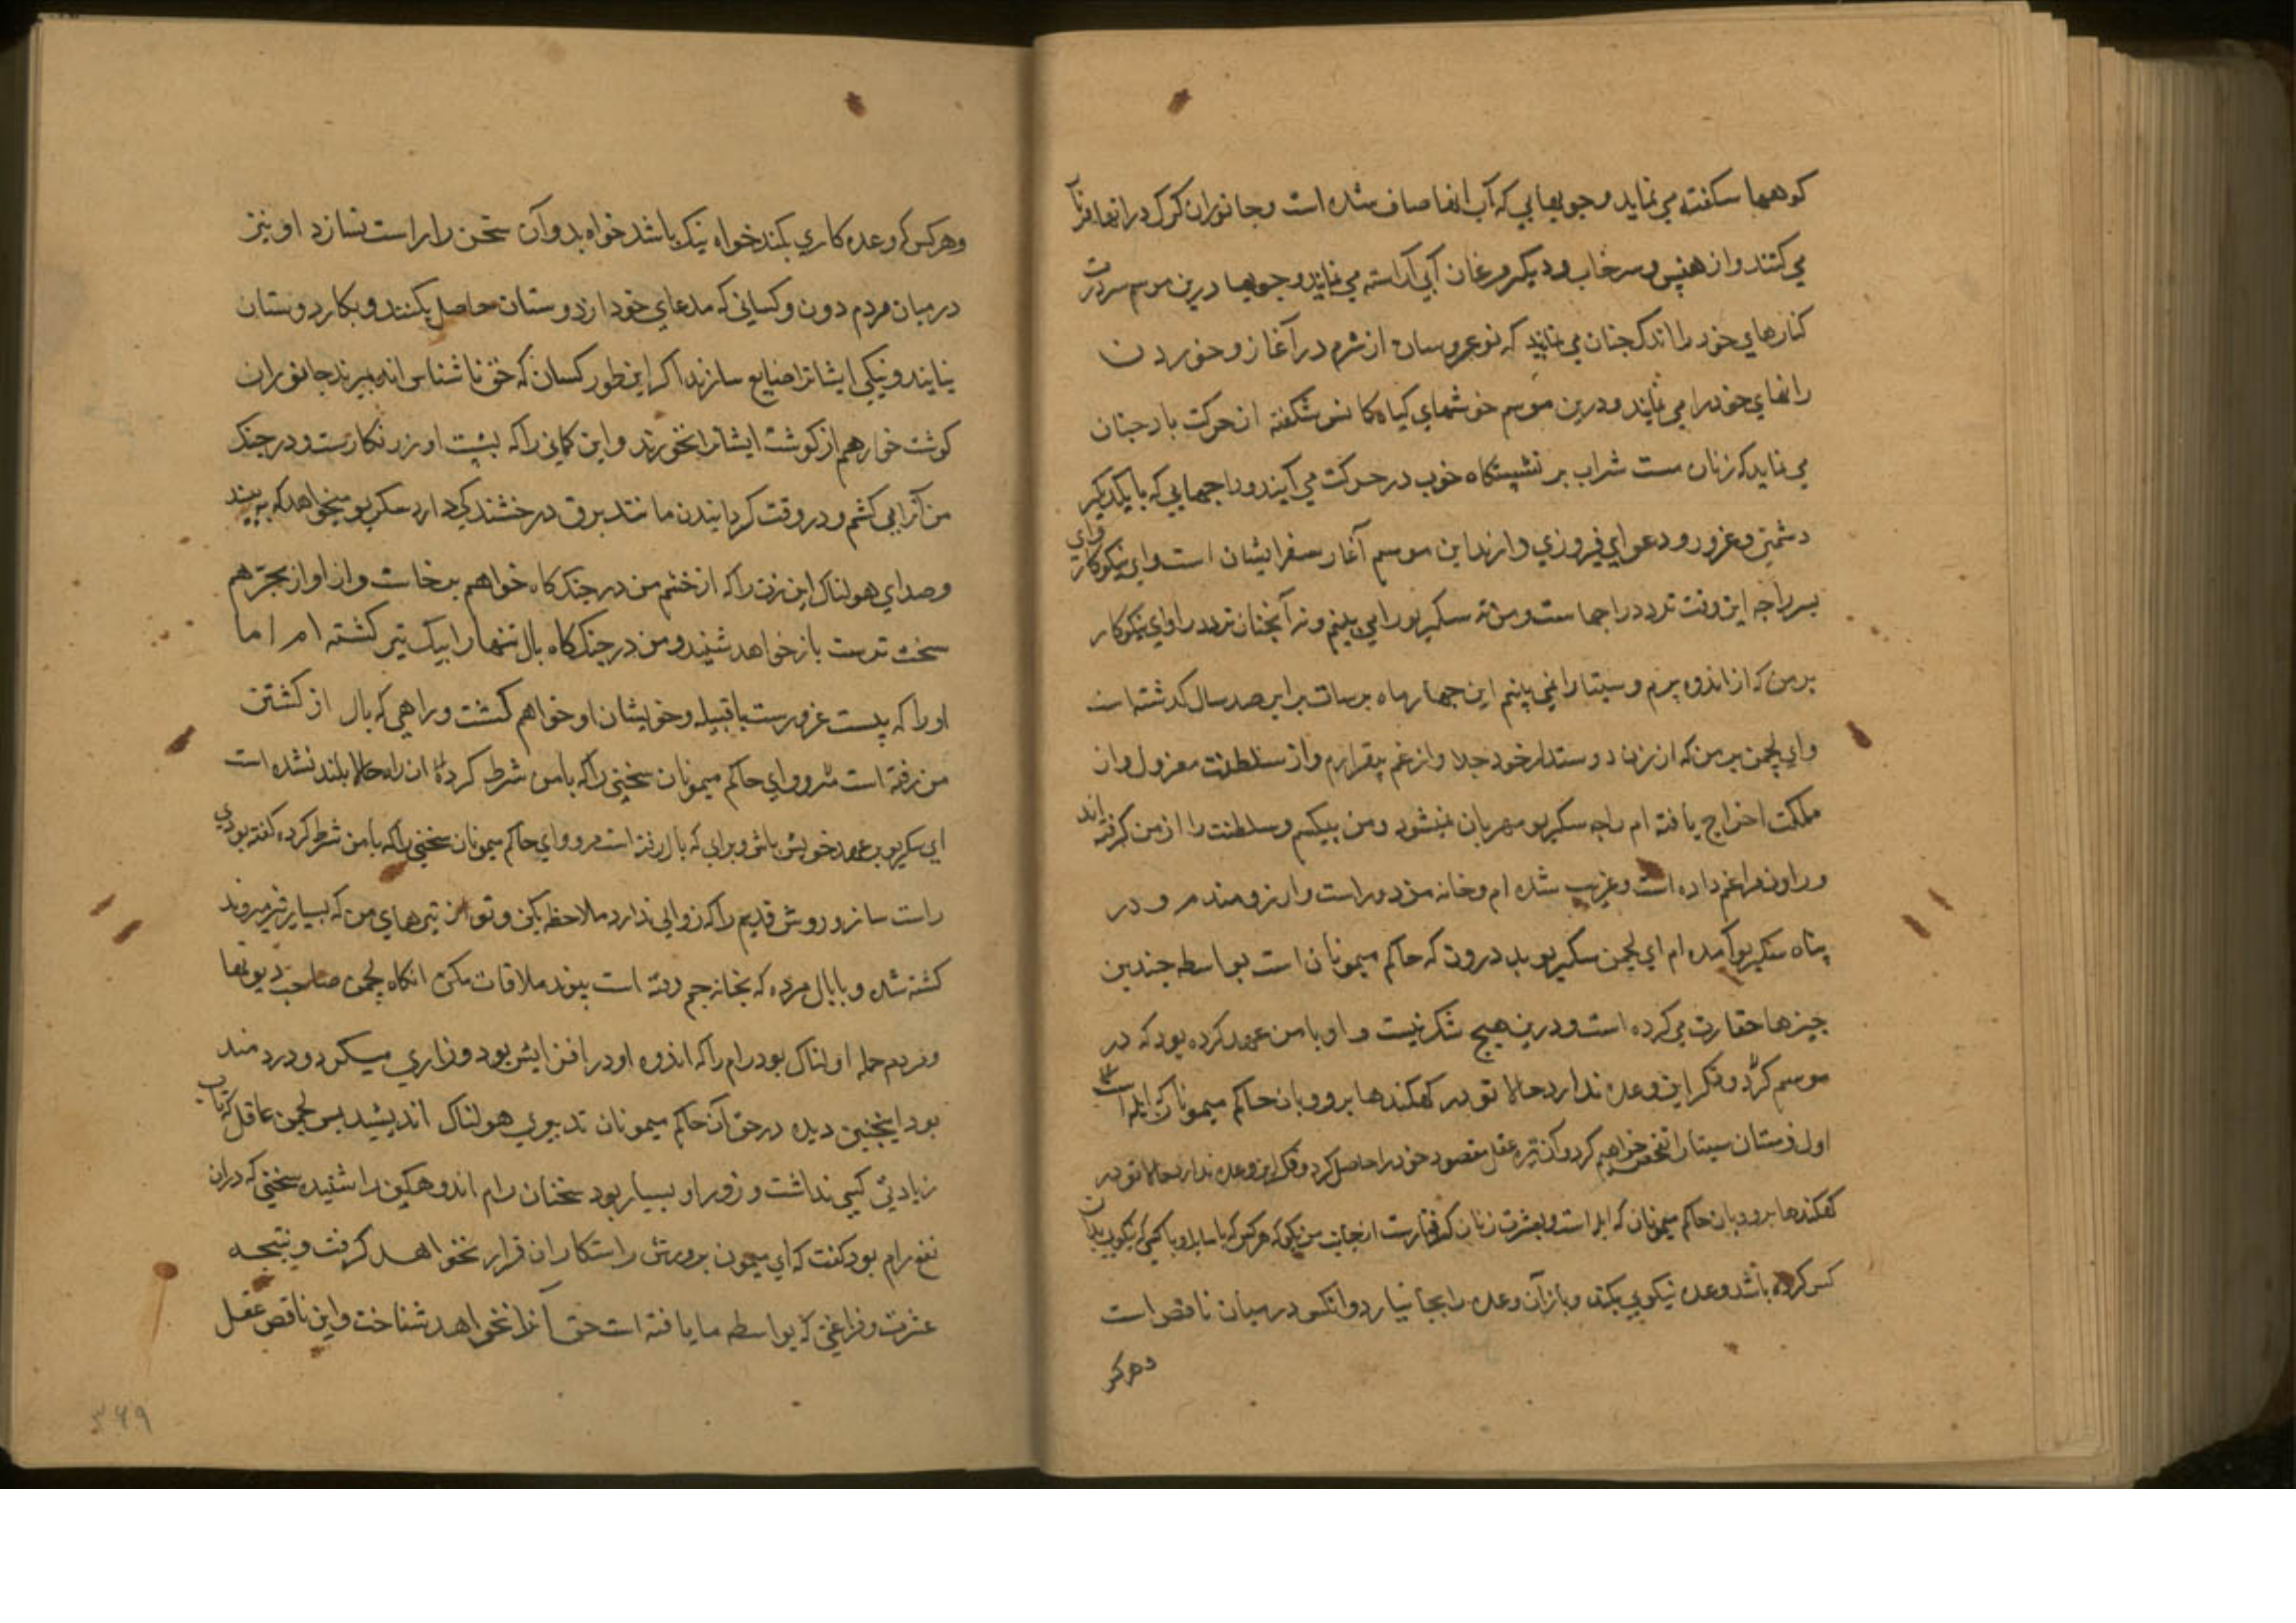 کوهها سکفته می نماید و جویهایی که آب انها صاف شده است و جانوران کرک در انها فریاد
می کنند و از هنس و سرخاب و دیکر مرغان آبی آراسته می نمایند و جویها درین موسم سرد
کنارهای خود را اندک چنان می نمایند که نو عروسان از شرم در آغاز و خوردن
رانهای خود را می نمایند و درین موسم خوشهای کیاه کانس شکفته از حرکت باد چنان
می نماید که زنان مست شراب بر نشیستکاه خوب در حرکت می آیند و راجهایی که با یکدیکر
دشمنی و غرور و دعوای فیروزی دارند این موسم آغاز سفر ایشان است و ای نیکوکار وای
پسر راجه این وقت تردد راجهاست و من نه سکریو را می بینم و نه آنچنان تردد را و ای نیکوکار
بر من که از اندوه پرم و سیتا را نمی یابم این چهار ماه برسات برابر صد سال کذشته است
وای لچمن بر من که از زن دوستدار خود جدا و از غم بیقرارم و از سلطنت معزول و از
مملکت اخراج یافته ام راجه سکریو مهربان نمیشود و من بیکسم و سلطنت را از من کرفته اند
و راون مرا غم داده است و غریب شده ام و خانه من دور است و آرزومندم و در
پناه سکریو آمده ام ای لچمن سکریو بد درون که حاکم میمونان است بواسطه چندین
چیزها حقارت می کرده است و درین هیچ شک نیست و او با من عهد کرده بود که در
موسم کرد و فکر این وعده ندارد حالا تو در کهکندها برو و بان حاکم میمونان که ابله است
اول زمستان سیتا را تفحص خواهیم کرد و آن تیره عقل مقصود خود را حاصل کرد و فکر این وعده ندارد حالا تو در
کهکندها برو و بان حاکم میمونان که ابله است و بعشرت زنان کرفتارست از جانب من بکو که هر کس که با
کس کرده باشد وعده نیکویی بکند و باز آن وعده را بجا نیارد و انکس در میان ناقص است
وهر کس
وهر کس که وعده کاری بکند خواه نیک باشد خواه بد و آن سخن را راست نسازد او نیز
در میان مردم دون و کسانی که مدعای خود از دوستان حاصل بکنند و بکار دوستان
نیایند و نیکی ایشانرا ضایع سازند اکر این طور کسان که حق ناشناس اند بمیرند جانوران
کوشت خوار هم از کوشت ایشانرا نخورند و این کمانی را که پشت او زرنکارست و در جنک
من آنرا می کشم و در وقت کردانیدن مانند برق درخشندکی دارد سکریو میخواهد که ببیند
و صدای هولناک این زه را که از خشم من در جنک کاه خواهم برخاست و از آواز بجر هم
سخت ترست باز خواهد شنید و من در جنک کاه بال تنها را بیک تیر کشته ام اما
او را که پست غرورست با قبیله و خویشان او خواهم کشت و راهی که بال از کشتن
من رفته است مرو و ای حاکم میمونان سخنی را که با من شرط کرده ان راه حالا بلند نشده است
ای سکریو بر عهد خویش باش و براهی که بال رفته است مرو و ای حاکم میمونان سخنی را که با من شرط کرده کفته بودی
راست ساز و روش قدیم را که زوالی ندارد ملاحظه بکن و تو از تیرهای من که بسیار تیز میروند
کشته شده و با بال مرده که بخانه جم رفته است پیوند ملاقات مکن انکاه لچمن صاحب دیوتها
و مردم جمله او لناک بود رام را که اندوه او در افزایش بود و زاری میکرد و دردمند
بود اینچنین دیده در حق آن حاکم میمونان تدبیری هولناک اندیشید پس لچمن عاقل که تاب
زیادتی کسی نداشت و زور او بسیار بود سخنان رام اندوهکین را شنیده سخنی که در ان
نفع رام بود کفت که ای میمون بروش راستکاران قرار نخواهد کرفت و نتیجه
عشرت و فراغتی که بواسطه ما یافته است حق آنرا نخواهد شناخت و این ناقص عقل
۳۶۹